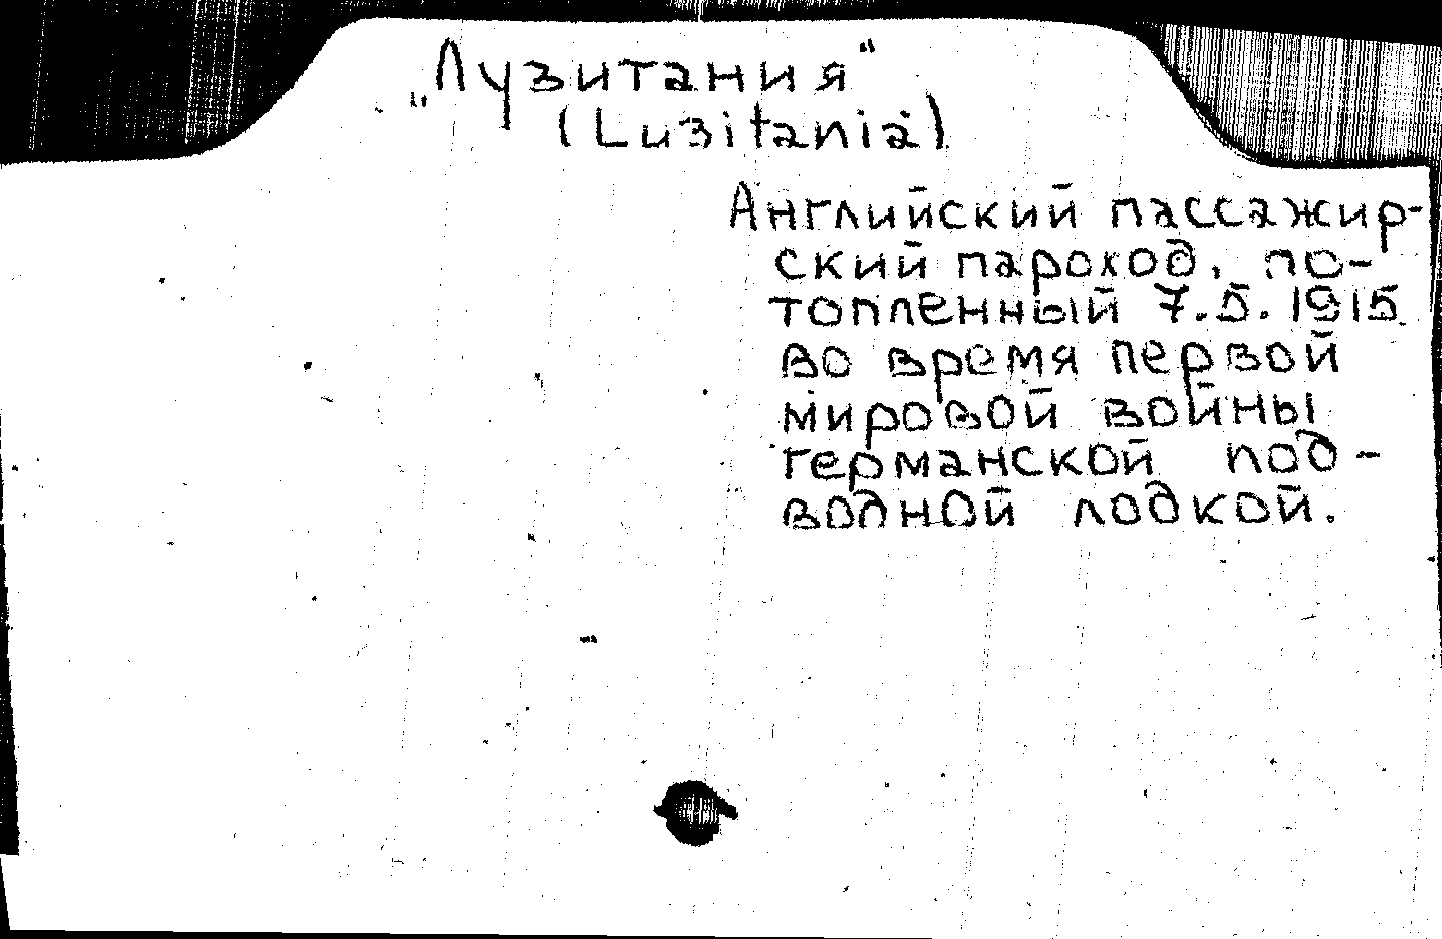 „Лузитания“
(Lusitania)
Английский пассажир-
ский пароход, по-
топленный 7.5.1915
во время первой
мировой войны
германской под-
водной лодкой.